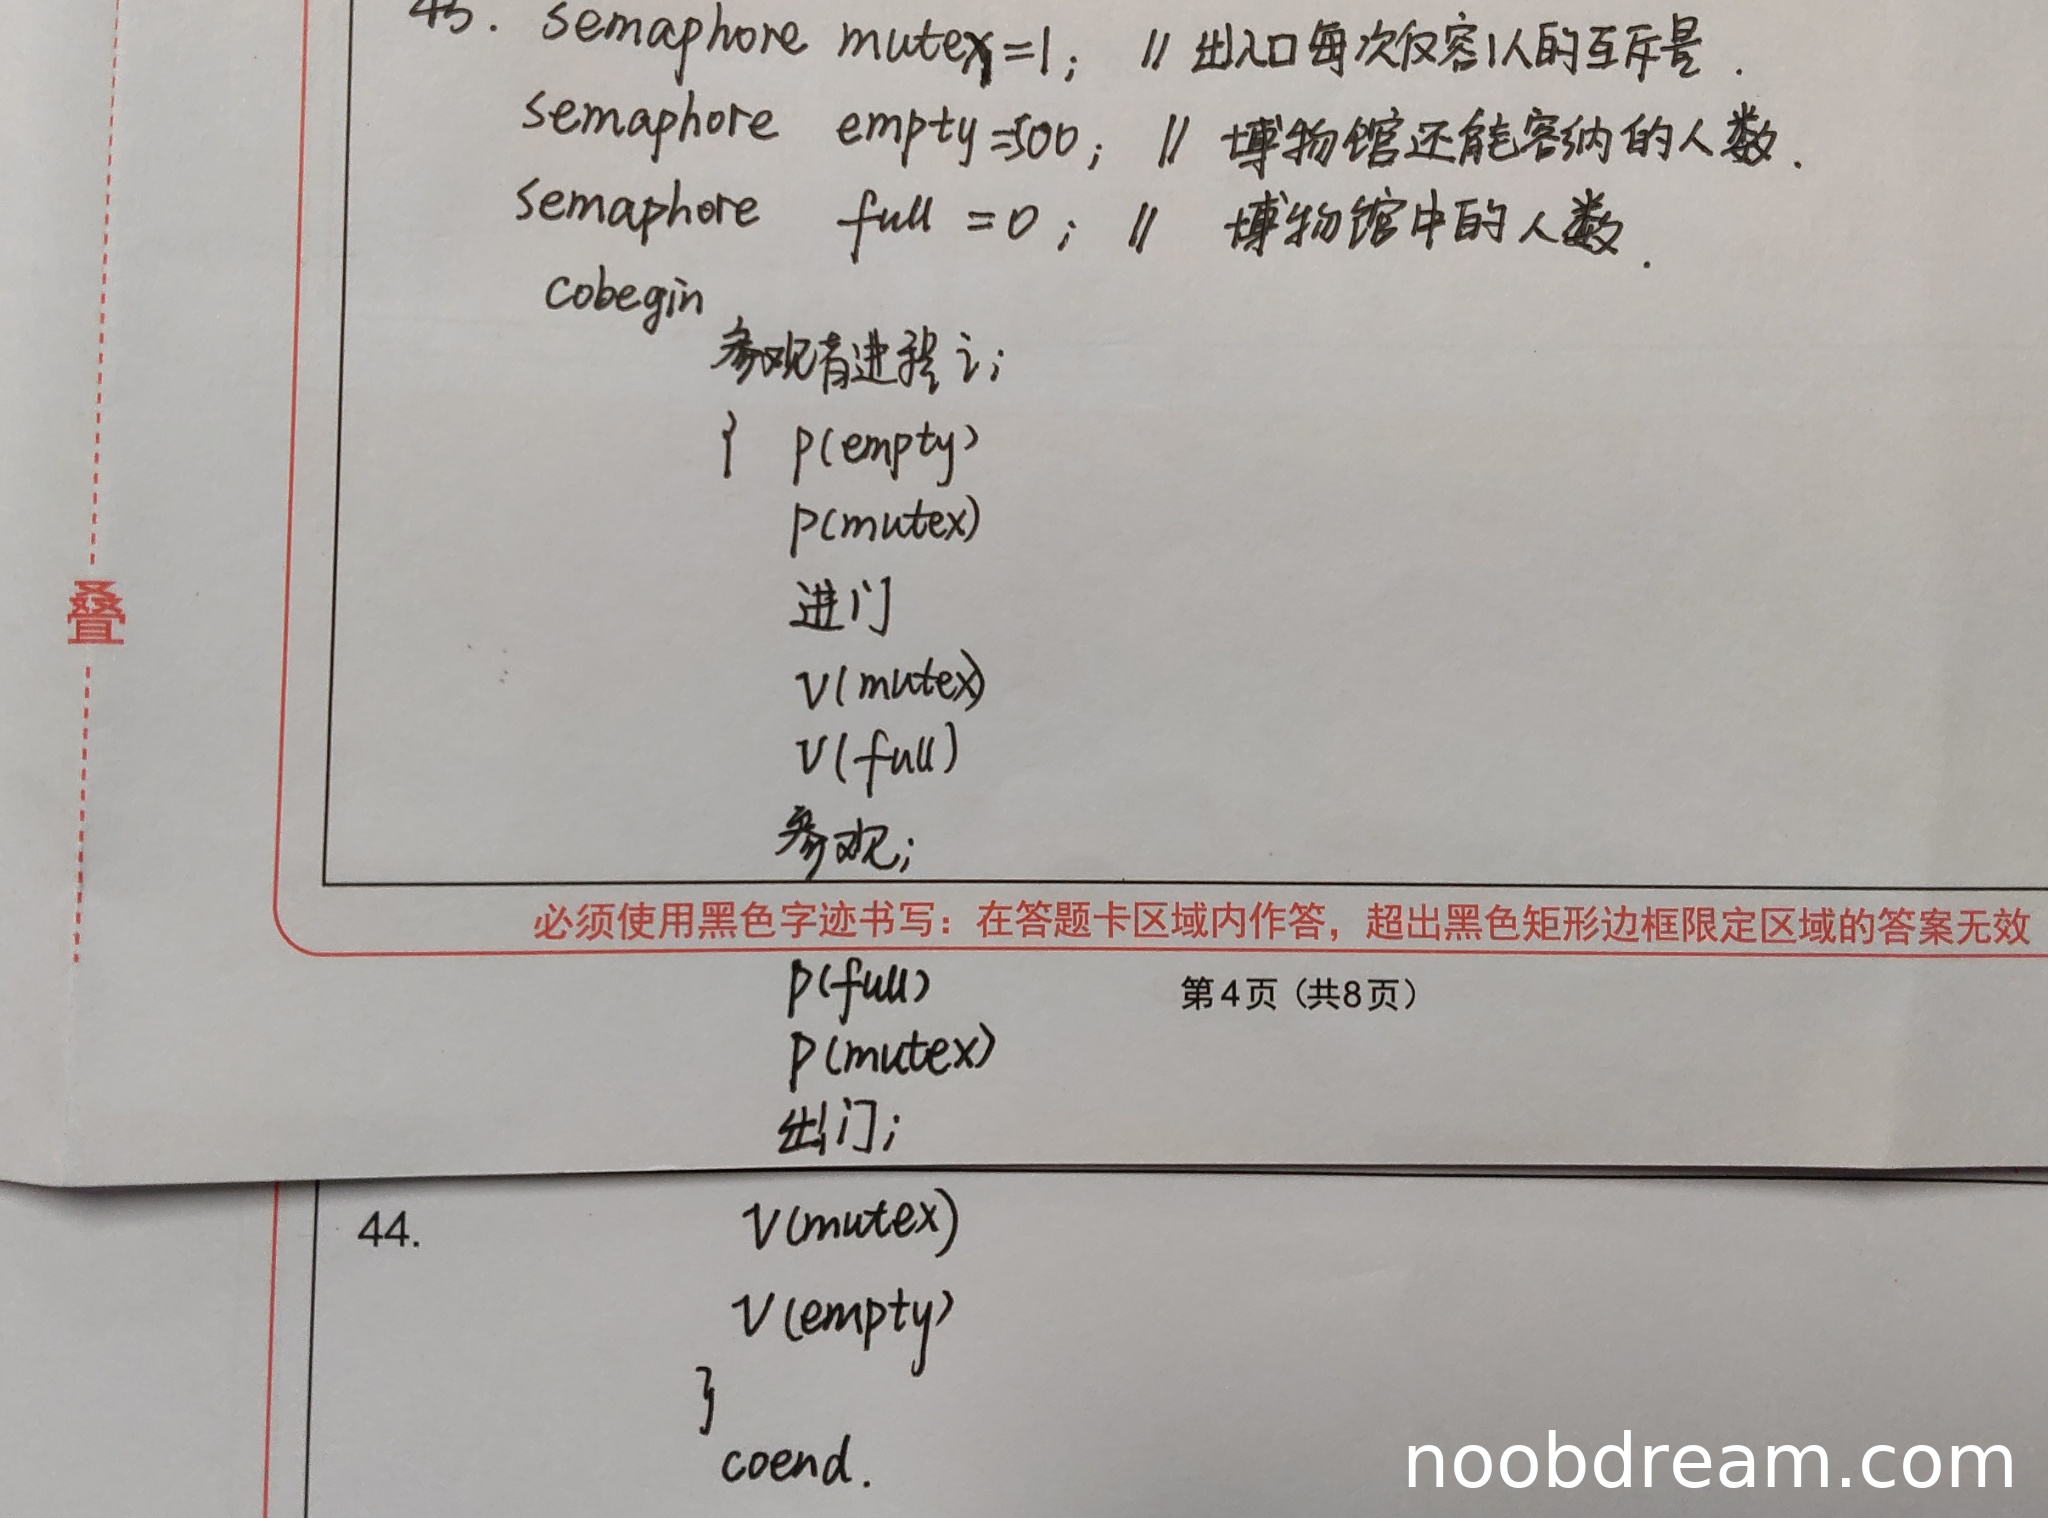 45. semaphore mutex=1; // 出入口每次仅容1人的互斥量.
semaphore empty=500; // 博物馆还能容纳的人数.
semaphore full =0; // 博物馆中的人数.
cobegin
参观者进程 i;
{ p(empty)
p(mutex)
进门
v(mutex)
v(full)
参观;
叠
必须使用黑色字迹书写：在答题卡区域内作答，超出黑色矩形边框限定区域的答案无效
p(full)
第4页（共8页）
p(mutex)
出门;
44.
v(mutex)
v(empty)
}
coend.
noobdream.com